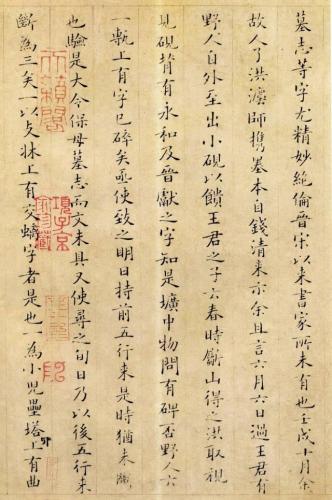 墓志等字尤精妙絕倫晉宋以來書家所未有也壬戌十月余
故人了洪濾師攜墓本自錢清來示余且言六月六日過王君有
野人自外至出小硯以饋王君之子云春時斸山得之洪取視
見硯背有永和及晉獻之字知是壙中物問有碑否野人云
一甎上有字已碎矣亟使致之明日持前五行來是時猶未斷
也驗是大令保母墓志而文未具又使尋之旬日乃以後五行來
斷為三矣一以支牀上有交螭字者是也一為小兒壘塔上有曲
天籟閣
項子京家珍藏